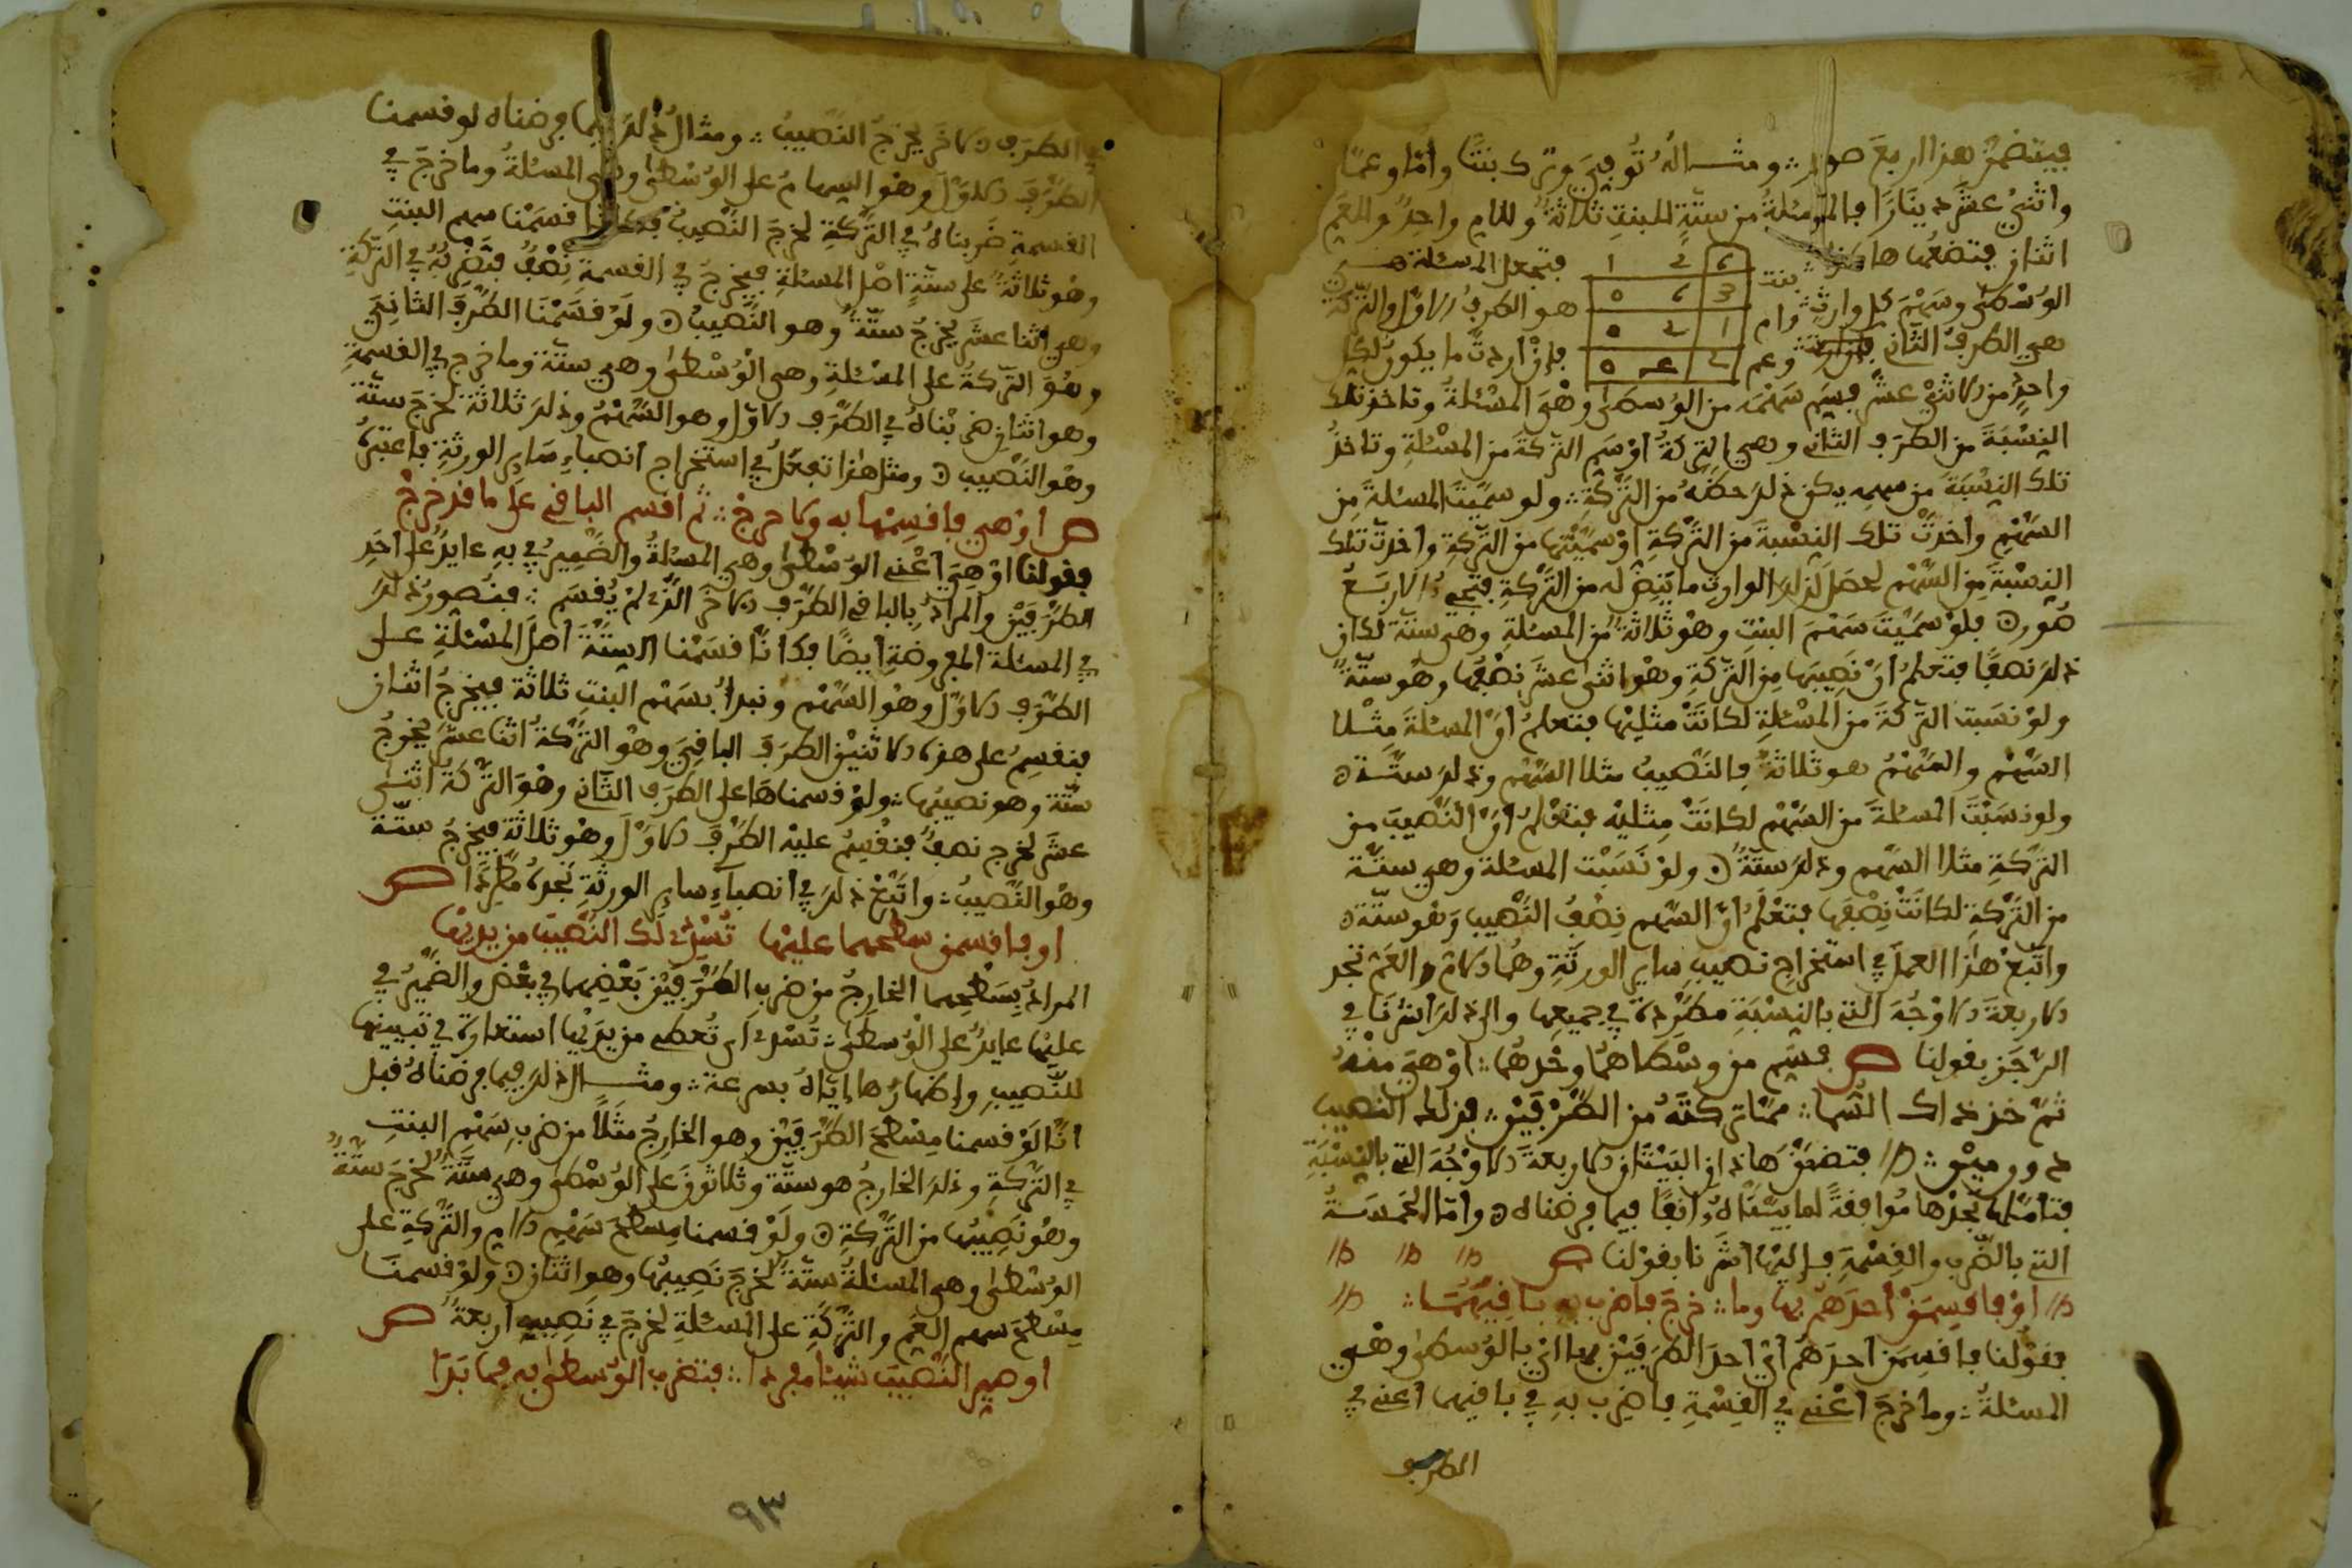 فيتضمن هذا اربع صور ∴ ومثاله تُوفي وترك بنتًا وأمّا وعمّا
واثني عشر دينارًا فالمسئلة من ستّةٍ للبنتِ ثلاثةٌ وللام واحدٌ وللعم
اثنان فتضعها هاكذا بنت 6 2 1 فتجعل المسئلة هي
الوُسْطى وسَهْمَ كل وارثٍ وام 3 6 0 هو الطرفُ الاوّل والتّركة
هي الطرف الثاني وعم 1 2 0 فإنْ اردتَّ ما يكون لكل
2 0
واحدٍ من الاثني عشر فسَمِّ سَهْمَه من الوُسطى وهْيَ المسْئلةُ وتاخذ تلك
النِسْبَةَ من الطرَف الثاني وهي التركةُ اوْ سَمِّ التّركةَ من المسْئلةِ وتاخذُ
تلك النِسْبَةَ من سهمِه يكن ذلك حظَّهُ من التَّرْكةِ ∴ ولو سمّيْتَ المسئلةَ مِن
السَّهْمِ واخذتَّ تلك النِسْبةَ من التَّرْكةِ اوْ سَمَّيْتها من التّركةِ واخذتَ تلك
النِسْبةَ مِن السَّهْم لحصَل لذلك الوارث ما يَنِضُّ له من التَّرْكةِ فتجيءُ الاربَعُ
صُور فلوْ سَمّيْتَ سَهْمَ البنتِ وهْوَ ثلاثةٌ مِن المسئلةِ وهي ستّةٌ لكان
ذلك نصفًا فتعلمُ انّ نَصِيبَها مِن التّركةِ وهْو اثنى عشَر نِصْفُها وهُو ستّةٌ
ولوْ نسَبت التّركةَ من المسْئلةِ لكانَتْ مثليْها فتعلمُ انّ المسئلةَ مِثْلا
السّهْم والسّهْمُ هو ثلاثةٌ فالنّصيبُ مثلا السّهْم وذلك ستّـة
ولو نسَبْتَ المسئلةَ من السّهْم لكانَتْ مِثليْه فتعْلمُ أنّ النّصيبَ من
التّركةِ مثلا السّهم وذلك ستّةٌ ولوْ نَسَبْت المسئلة وهي ستّـة
من التّرْكةِ لكانَتْ نِصْفَها فتعْلَمُ انّ السّهم نِصْفُ النّصيب وَهُو ستّة
واتبعْ هٰذا العملَ في استخراج نصيبِ ساير الورَثَةِ وهُما الامّ والعَمّ تجد
الاربعةَ الاوْجُهَ التي بالنِسْبَةِ مطّرِدة في جميعِها والى ذلك اشرْنَا في
الرّجَز بقولنا ص فسَمِّ من وسْطاهما وحْدهُما ∴ اوْ هي منْهُ
ثمّ خذ ذاك السُّما ∴ ممّا تركتَهُ من الطَّرْفَيْن ∴ فذلك النصيب
دوون ميْن ∴ فتضَمَّن هاذان البَيْتَان الاربعةَ الاوْجُهَ التي بالنِسْبَةِ
فتامّلها تجدْها مُوافقةً لما بيّنّاهُ انِفًا فيما فرضناه وامّا الخمسَةُ
التي بالضّرب والقِسْمَةِ فإليْها اشَرْنا بقوْلنا ص
اوْ فاقسِمَنْ احدَهُم بها وما ∴ خرجَ فاضرب به باقِيهُمَا ∴
فقوْلنا فاقسِمَن احدَهُم ايْ احدَ الطرَفيْن بها اي بالوُسطى وهْـي
المسئلةُ ∴ وما خرجَ اعْني في القِسْمةِ فاضِرب بهِ في باقيهما اعني في
الطرف
في الطرَف الاخَر يخرُجُ النّصيبُ ∴ ومثالُ ذلك فيما فرضناه لو قسمنا
الطّرَفَ الاوّلَ وهُو السهامُ على الوُسْطى وهي المسئلةُ وما خرجَ في
القسمةِ ضَرَبناهُ في التَّرْكَةِ لخرجَ النّصيبُ فكانّا قسَمْنا سهم البنتِ
وهُو ثلاثةٌ على ستّةٍ اصْل المسئلةِ فيخرجُ في القسمةِ نِصْفٌ فتضربُهُ في التركةِ
وهي اثنا عشَر يخرُجُ ستّةٌ وهو النّصيبُ ولَوْ قسَمْنا الطّرَفَ الثانِيَ
وهُوَ التّركةُ على المسْئلةِ وهي الوُسْطى وهي ستّة وما خرج في القسمةِ
وهو اثنان ضربْناهُ في الطّرَف الاوّل وهو السّهْمُ وذلك ثلاثة لخرجَ ستّة
وهْو النَّصيب ومثل هٰذا تفعَلُ في استخراج انصباءِ سَاير الورثةِ فاعتبرْ
ص اوْ هي فاقسِمْها به وما خرجْ ∴ ثم اقسم الباقي على ما قد خرجْ
فقولنا اوْ هِيَ اعْني الوُسْطى وهي المسئلةُ والضّميرُ في بهِ عايدٌ على احَدِ
الطّرَفيْن والمرادُ بالباقي الطّرَف الاخَر الذي لمْ يُقسَم ∴ فتُصورُ ذلك
في المسئلة المفروضةِ ايضًا فكانّا قسَمْنا الستّةَ اصلَ المسْئلةِ على
الطّرَف الاوّل وهُو السّهْم ونبدأُ بسَهْم البنتِ ثلاثة فيخرجُ اثنان
فنقسِمُ على هذه الاثنيْن الطرَفَ الباقِيَ وهْو التَّرْكةُ اثنا عشَر يخرجُ
ستّة وهو نصيبُها ∴ ولوْ قسمناهَا على الطرَف الثاني وهْوَ التّركةُ اثنىْ
عشَر لخرج نصفٌ فنقْسِمُ عليْه الطّرَفَ الاوّلَ وهُو ثلاثةٌ فيخرجُ ستّـة
وهُو النّصيبُ ∴ واتّبِعْ ذلك في انصباءِ ساير الورثةِ تجدْه مطّرِدًا ص
او فاقسمن سطحهما عليْها تُسْدَ لك النّصيب من يديْها
المرادُ بِسَطحِهِما الخارجُ من ضرب الطّرَفيْن بَعْضِهما في بعْض والضّميرُ في
عليْها عايدٌ على الوُسطى ∴ تُسْدَ اي تُعطى من يدَيْها استعارة في تبيينها
للنّصيب وإظهارُها إيّاهُ بسرعة ∴ ومثـال ذلك فيما فرضناهُ قبل
انّا لَوْ قسمنا مسْطحَ الطّرَفيْن وهو الخارجُ مثَلًا من ضرب سَهْمِ البنتِ
في التّركةِ وذلك الخارجُ هو ستّة وثلاثونَ على الوُسْطى وهي ستّةٌ لخرجَ ستّةٌ
وهُو نَصِيبُها من التّركةِ ولَوْ قسمنا مسطحَ سَهْمِ الامِ والتّركةِ على
الوُسْطى وهي المسئلةُ ستّةٌ لخرجَ نَصِيبُها وهو اثنان ولوْ قسمنَا
مِسْطحَ سهم العَم والتَّرْكةِ على المسئلةِ لخرجَ في نَصِيبِه اربعةٌ ص
او صير النَّصيبَ شيئا مفردا ∴ فتضرب الوُسْطى به فيما بَدَا
٩٣